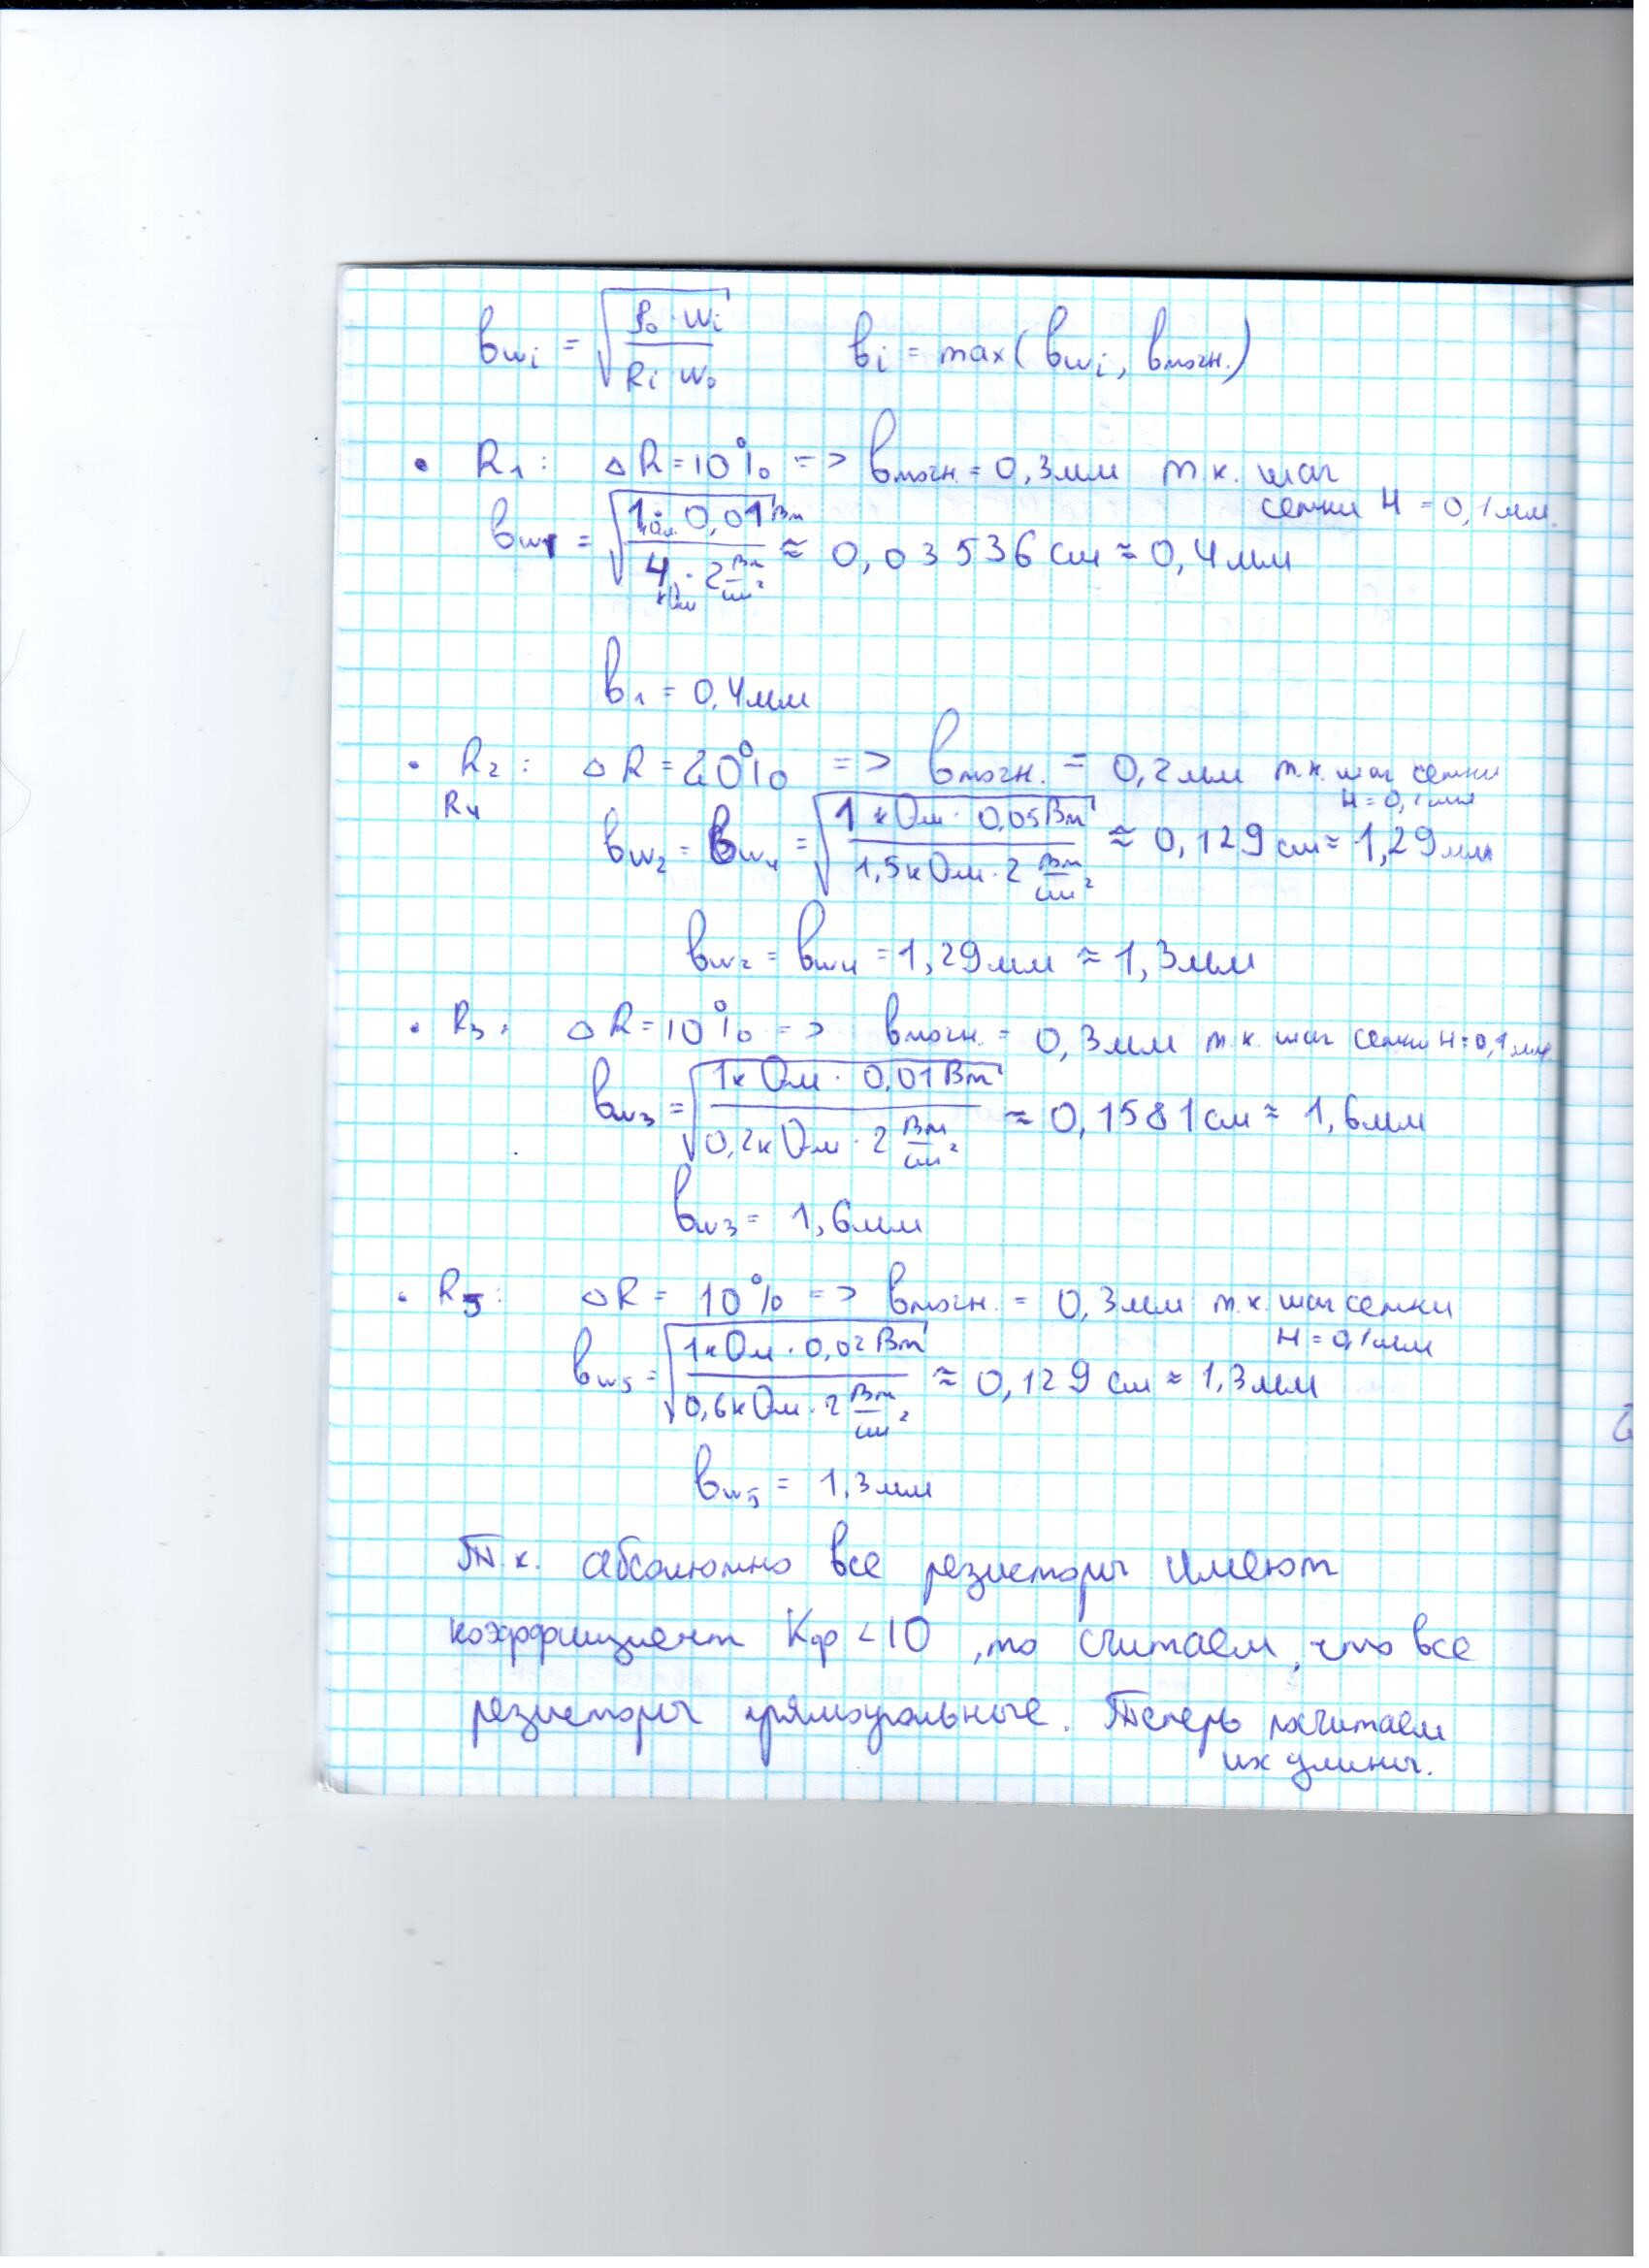 bwi = √(ρ₀ · Wi / Ri W₀)    bi = max(bwi, bточн.)
• R₁: ΔR = 10% => bточн. = 0,3мм т.к. шаг
сетки H = 0,1мм.
bw₁ = √(1кОм · 0,01Вт / 4кОм · 2 Вт/см²) ≈ 0,03536 см ≈ 0,4мм
b₁ = 0,4мм
• R₂: ΔR = 20% => bточн. = 0,2мм т.к. шаг сетки
R₄ H = 0,1мм
bw₂ = bw₄ = √(1кОм · 0,05Вт / 1,5кОм · 2 Вт/см²) ≈ 0,129 см ≈ 1,29мм
bw₂ = bw₄ = 1,29мм ≈ 1,3мм
• R₃: ΔR = 10% => bточн. = 0,3мм т.к. шаг сетки H = 0,1мм
bw₃ = √(1кОм · 0,01Вт / 0,2кОм · 2 Вт/см²) ≈ 0,1581 см ≈ 1,6мм
bw₃ = 1,6мм
• R₅: ΔR = 10% => bточн. = 0,3мм т.к. шаг сетки
H = 0,1мм
bw₅ = √(1кОм · 0,02Вт / 0,6кОм · 2 Вт/см²) ≈ 0,129 см ≈ 1,3мм
bw₅ = 1,3мм
Т.к. абсолютно все резисторы имеют
коэффициент Kф < 10, то считаем, что все
резисторы прямоугольные. Теперь расчитаем
их длины.